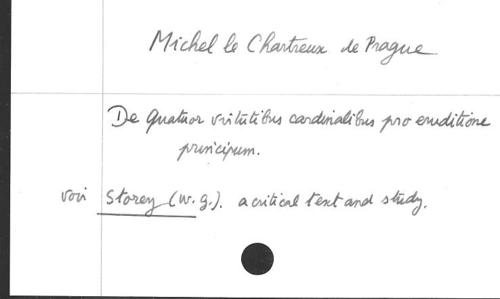 Michel le Chartreux de Prague
De quatuor virtutibus cardinalibus pro eruditione
principum.
voir Storey (W. G.). a critical text and study.